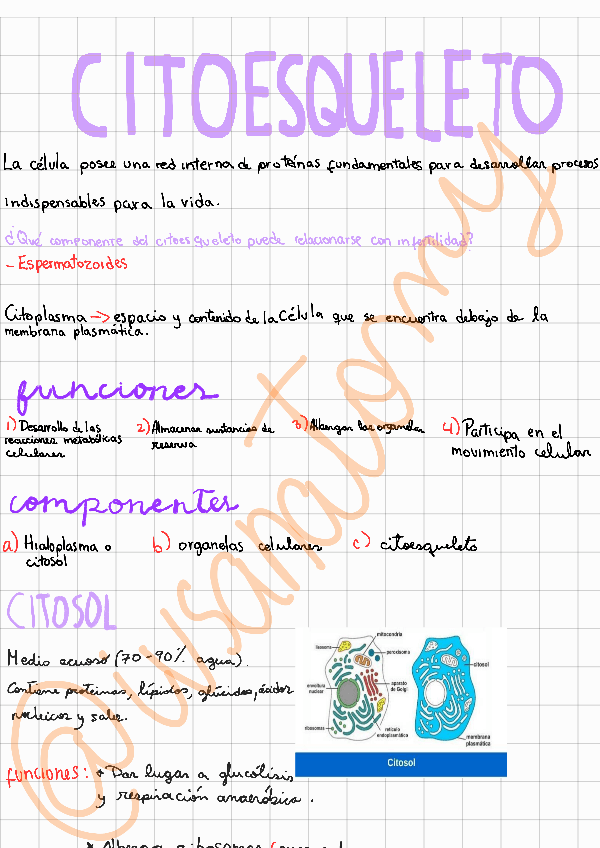 CITOESQUELETO
La célula posee una red interna de proteínas fundamentales para desarrollar procesos
indispensables para la vida.
¿Qué componente del citoesqueleto puede relacionarse con infertilidad?
- Espermatozoides
Citoplasma -> espacio y contenido de la célula que se encuentra debajo de la
membrana plasmática.
funciones
1) Desarrollo de las
reacciones metabólicas
celulares
2) Almacenar sustancias de
reserva
3) Albergar los organelos
4) Participa en el
movimiento celular
componentes
a) Hialoplasma o
citosol
b) organelas celulares
c) citoesqueleto
CITOSOL
Medio acuoso (70-90% agua).
Contiene proteínas, lípidos, glúcidos, ácidos
nucleicos y sales.
mitocondria
lisosoma
peroxisoma
citosol
envoltura
nuclear
aparato
de Golgi
ribosomas
retículo
endoplasmático
membrana
plasmática
Citosol
funciones: * Dar lugar a glucólisis
y respiración anaeróbica.
@wsanatomy